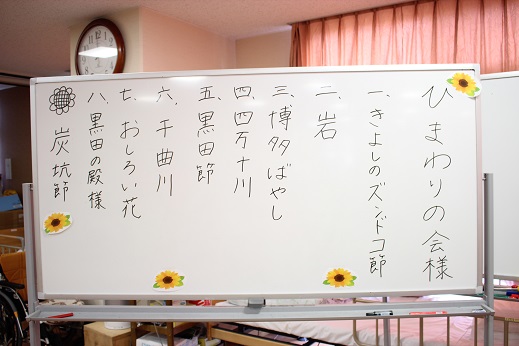 ひまわりの会様
一、きよしのズンドコ節
二、岩
三、博多ばやし
四、四万十川
五、黒田節
六、千曲川
七、おしろい花
八、黒田の殿様
炭坑節